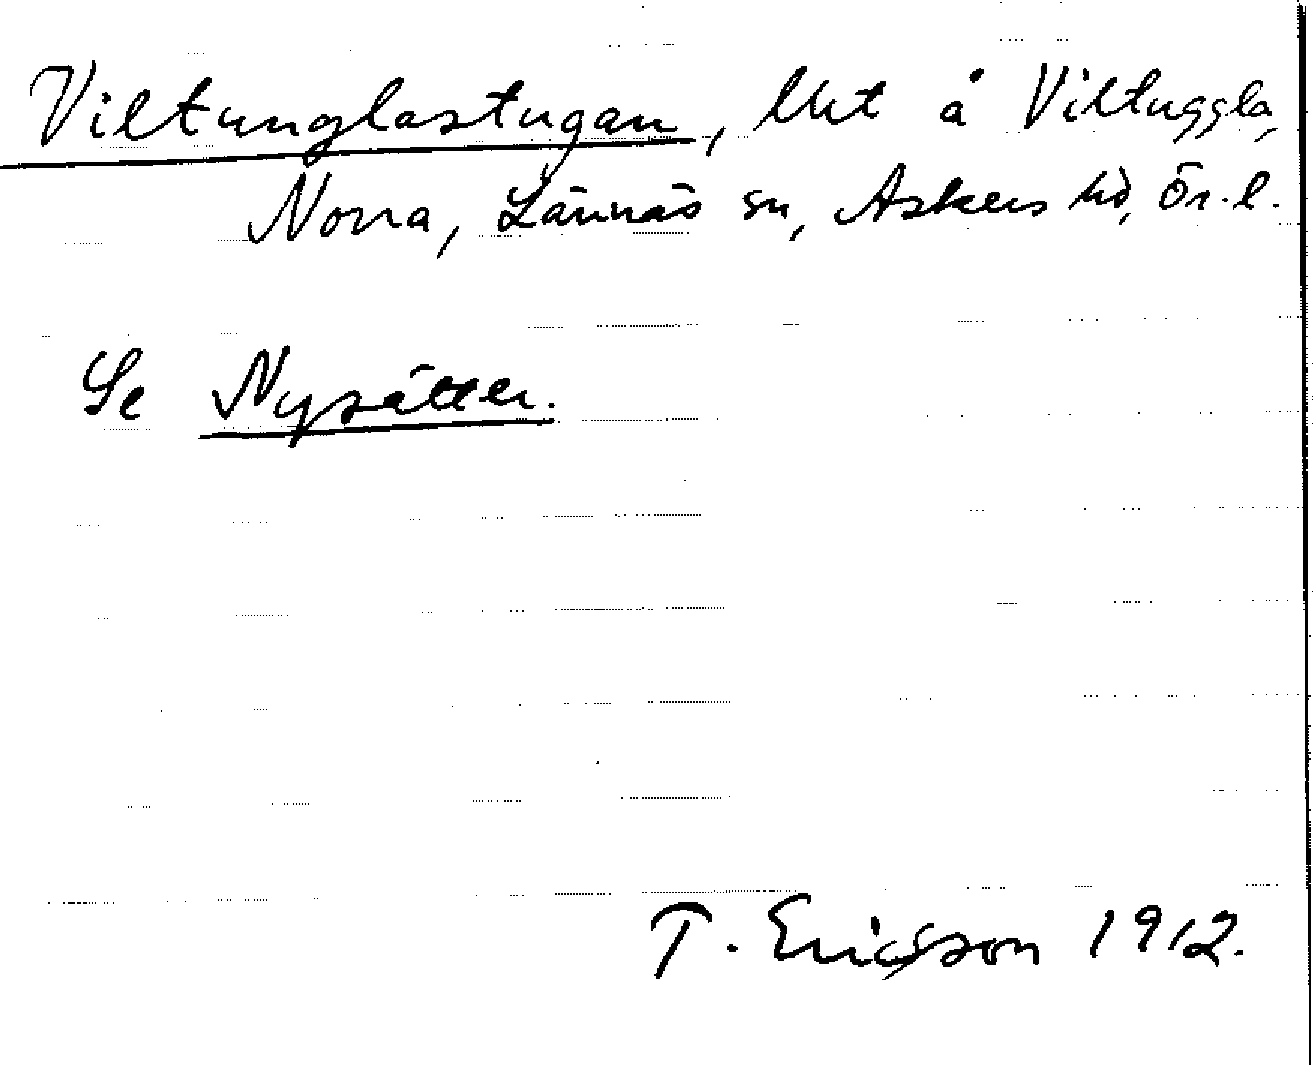 Viltunglastugan, lht å Viltuggla,
Norra, Lännäs sn, Askers hd, Ör. l.
Se Nysätter.
T. Ericsson 1912.